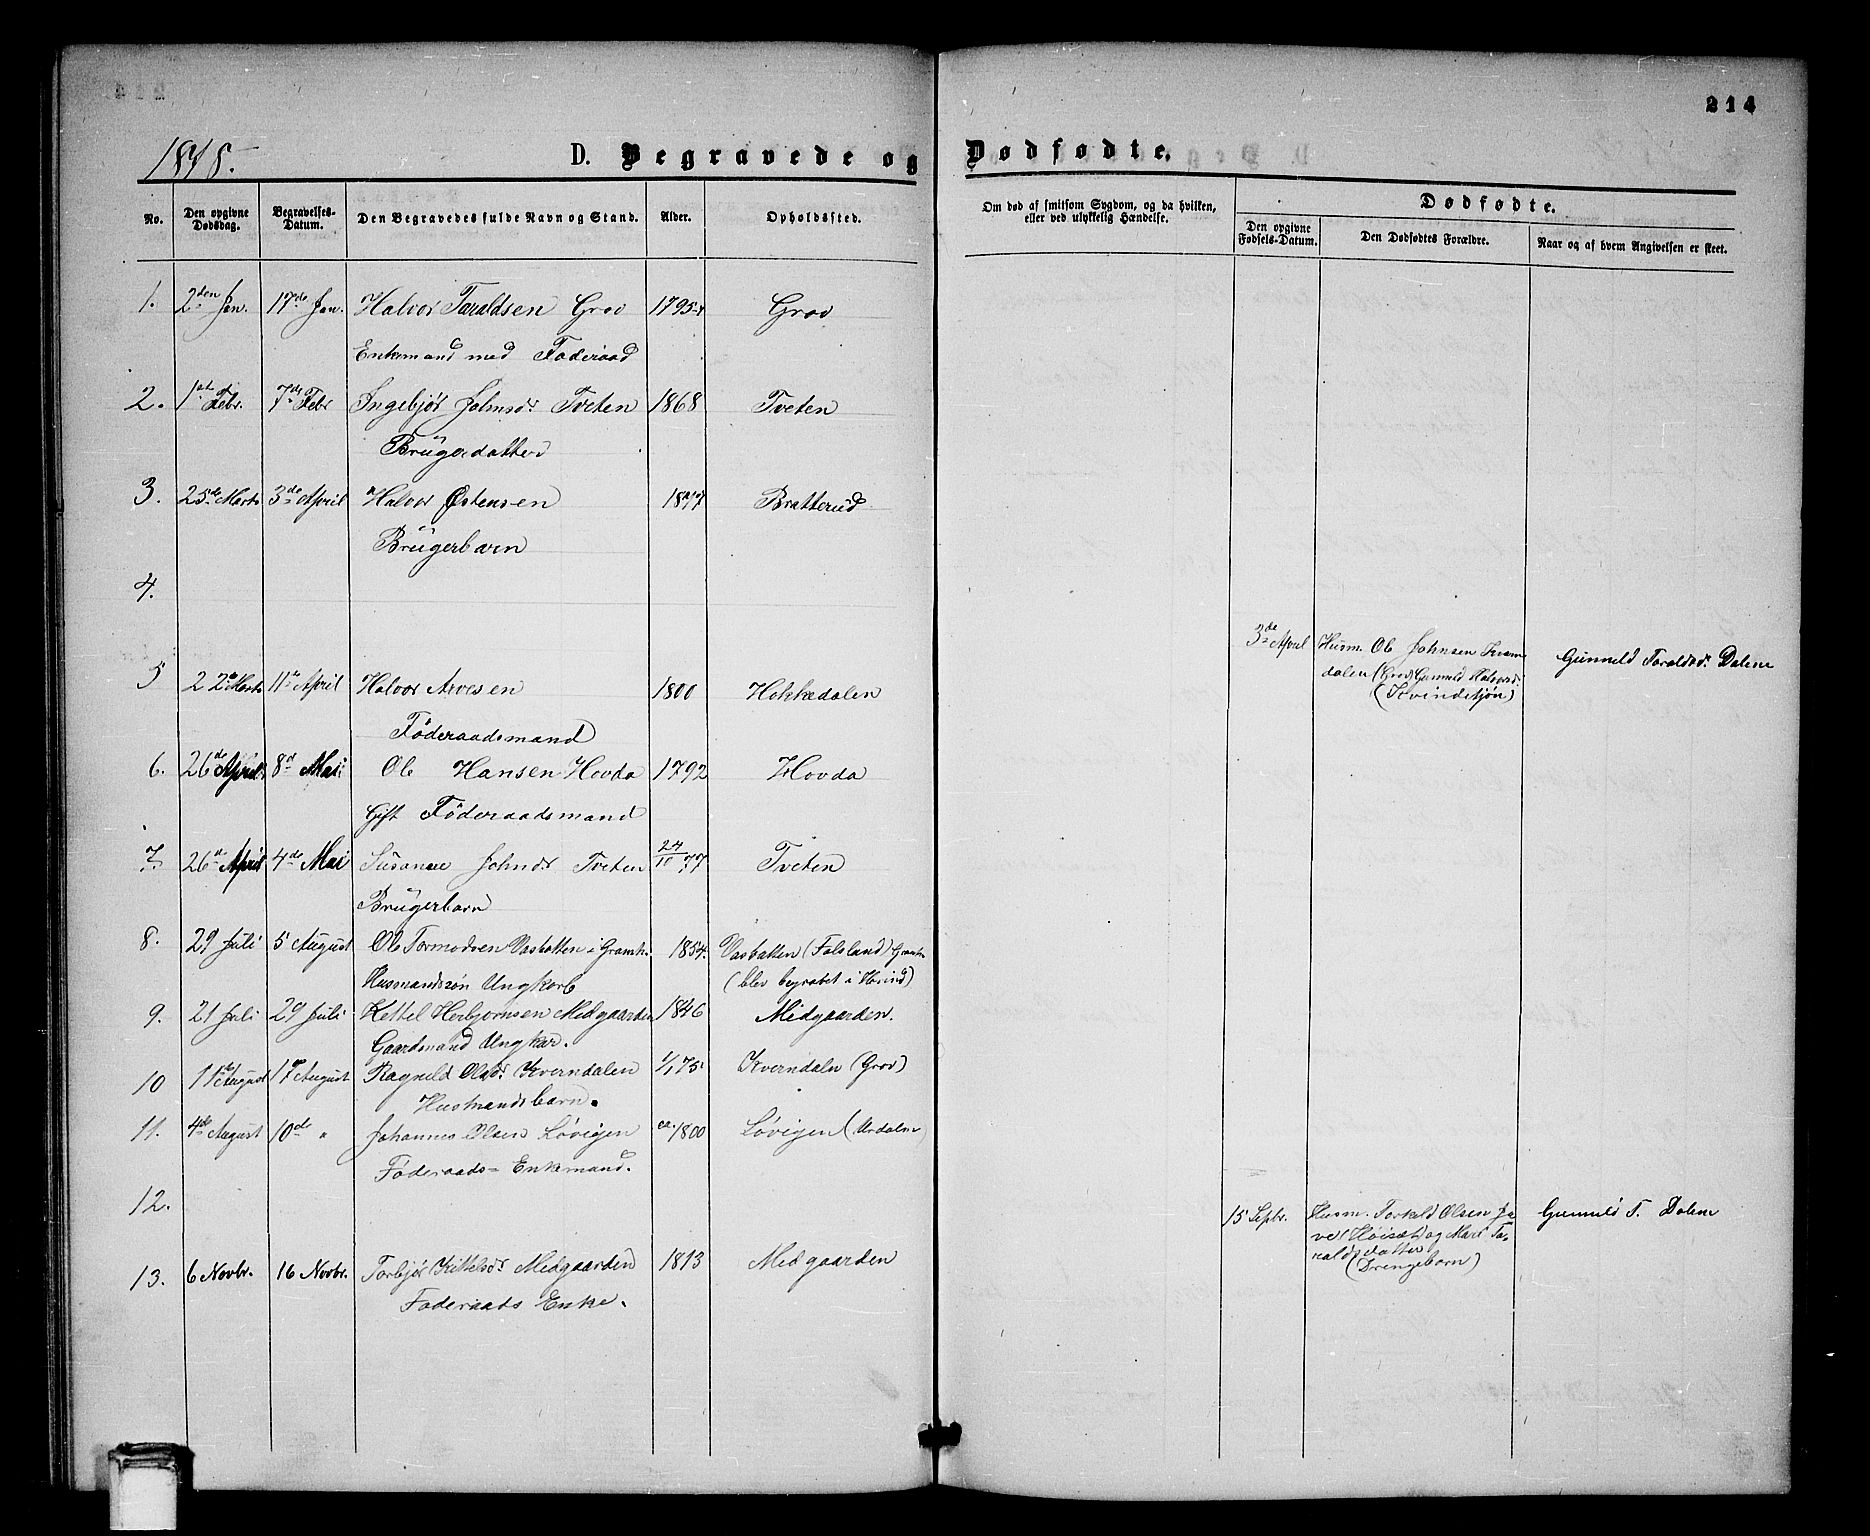 214
1878.
D. Begravede og Dødfødte.
No.
Den opgivne Dødsdag.
Begravelses-Datum.
Den Begravedes fulde Navn og Stand.
Alder.
Opholdssted.
Om død af smitsom Sygdom, og da hvilken, eller ved ulykkelig Hændelse.
Dødfødte.
Den opgivne Fødsels-Datum.
Den Dødfødtes Forældre.
Naar og af hvem Angivelsen er skeet.
1. 2den Jan. 17de Jan. Halvor Taraldsen Grov 1795 Grov
Enkemand med Føderaad
2. 1st Febr. 7de Febr Ingebjør Johnsdr Tveten 1868 Tveten
Brügerdatter
3. 25de Marts 3de April Halvor Østensen 1877 Bratterud
Brügerbarn
4.
3de April Husm. Ole Johnsen
dalen (Grov) Gunnild Halvors.
(Kvindekjøn)
Gunnild Taraldsdr. Dalene
5 22de Marts 11te April Halvor Arvesen 1800 Hokkedalen
Føderaadsmand
6. 26de April 8de Mai Ole Hansen Hovda 1792 Hovda
Gift Føderaadsmand
7. 26de April 4de Mai Susanne Johnsdr Tveten 24/10 77 Tveten
Brügerbarn
8. 29 Juli 5 August Ole Tormodsen Vasbotten i Gransh. 1854. Vasbotten (Følsland) Gransh.
Husmandssøn Ungkarl (blev begravet i Hovind)
9. 21 Juli 29 Juli Kettel Herbjørnsen Midgaarden 1846 Midgaarden.
Gaardmand Ungkar.
10 11te August 17 August Ragnild Olsdr. Kverndalen 1/1 75 Kverndalen (Grov)
Husmandsbarn.
11. 4de August 10de " Johannes Olsen Løvigen ca. 1800 Løvigen (Urdalen)
Føderaads= Enkemand.
12.
15 Sepbr. Husm. Torkild Olsen
ve (Høisæt) og Mari Ta-
raldsdatter
(Drengebarn)
Gunnild T. Dalene
13. 6 Novbr. 16 Novbr. Torbjør Kittelsdr. Midgaarden 1813 Midgaarden
Føderaads Enke.